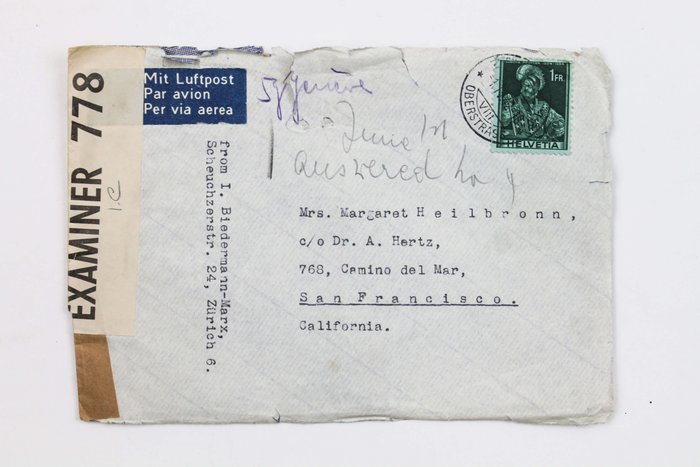 EXAMINER 778
I.C
Mit Luftpost
Par avion
Per via aerea
Genève
June 1st
answered
1 FR.
HELVETIA
VIII
OBERSTRA
from I. Biedermann-Marx,
Scheuchzerstr. 24, Zürich 6.
Mrs. Margaret Heilbronn,
c/o Dr. A. Hertz,
768, Camino del Mar,
San Francisco.
California.